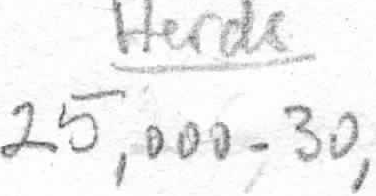 Herds
25,000-30,